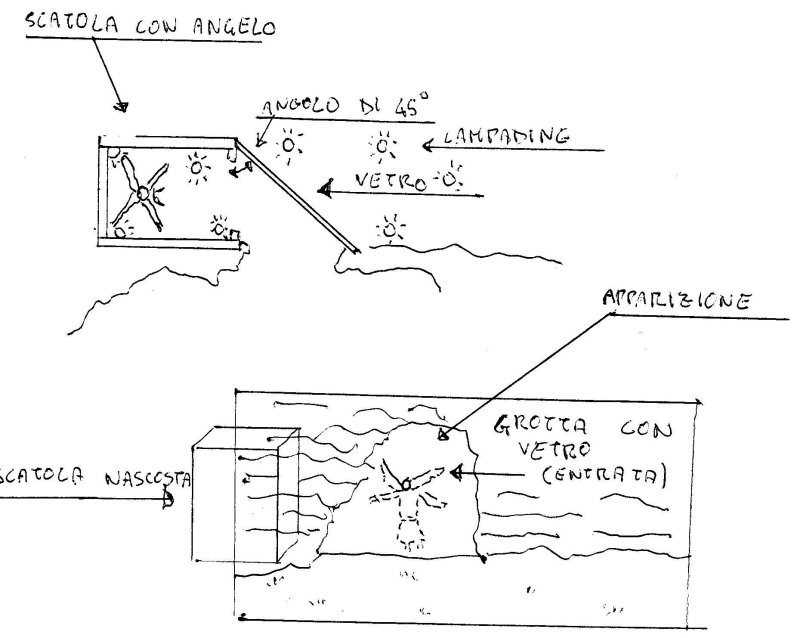 SCATOLA CON ANGELO
ANGOLO DI 45°
LAMPADINE
VETRO
APPARIZIONE
GROTTA CON
VETRO
(ENTRATA)
SCATOLA NASCOSTA